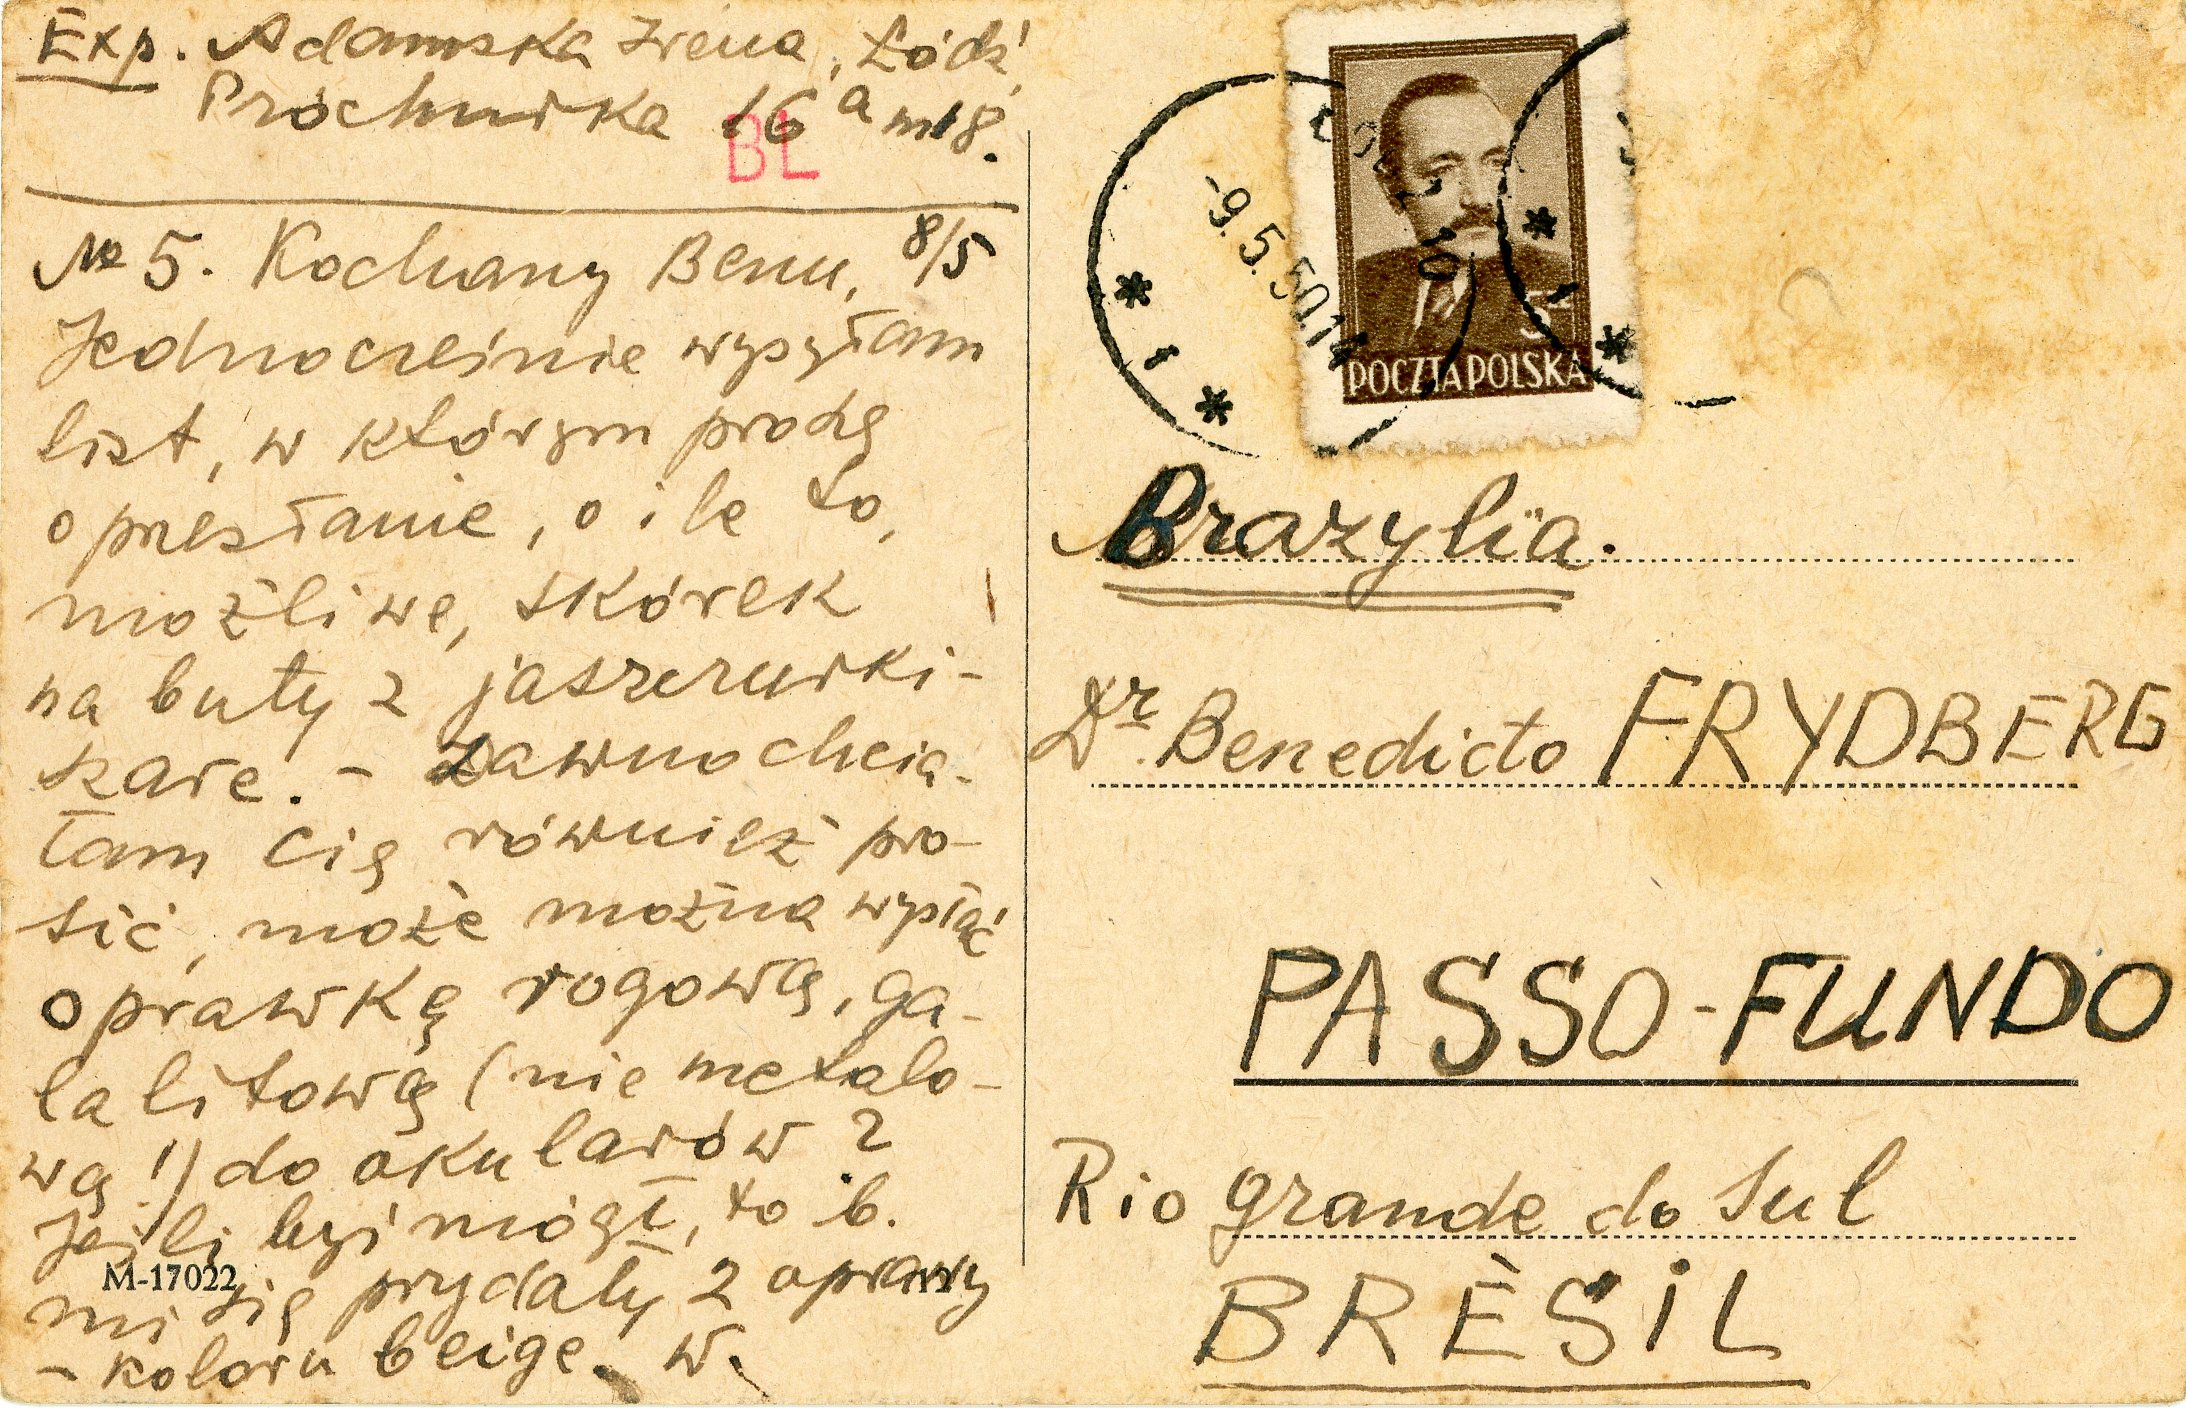 Exp. Adamska Irena, Łódź,
Próchnika 16 a m 18.
BL
№ 5. Kochany Benu, 8/5
Jednocześnie wysyłam
list, w którym proszę
o przesłanie, o ile to,
możliwe, skórek
na buty z jaszczurki -
szare. - Dawno chcia-
łam Cię również pro-
sić, może można wysłać
oprawkę rogową, ga-
lalitową (nie metalo-
wą!) do okularów?
Jeśli byś mógł, to b.
mi się przydały 2 oprawy
- koloru beige. W.
M-17022
-9.5.50.14
5
POCZTA POLSKA
Brazylia.
Dr. Benedicto FRYDBERG
PASSO-FUNDO
Rio Grande do Sul
BRÉSIL